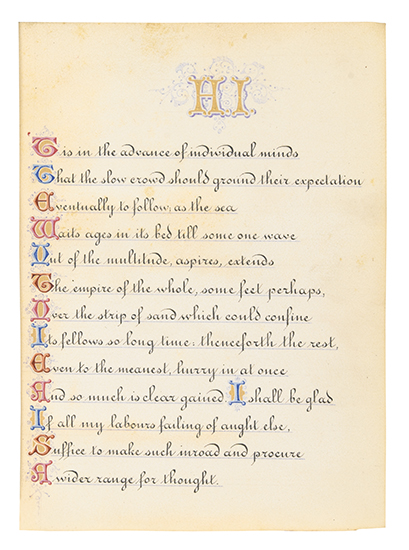 H.I.
Tis in the advance of individual minds
That the slow crowd should ground their expectation
Eventually to follow, as the sea
Waits ages in its bed till some one wave
Out of the multitude, aspires, extends
The empire of the whole, some feet perhaps,
Over the strip of sand which could confine
Its fellows so long time: thenceforth the rest,
Even to the meanest, hurry in at once
And so much is clear gained. I shall be glad
If all my labours failing of aught else,
Suffice to make such inroad and procure
A wider range for thought.